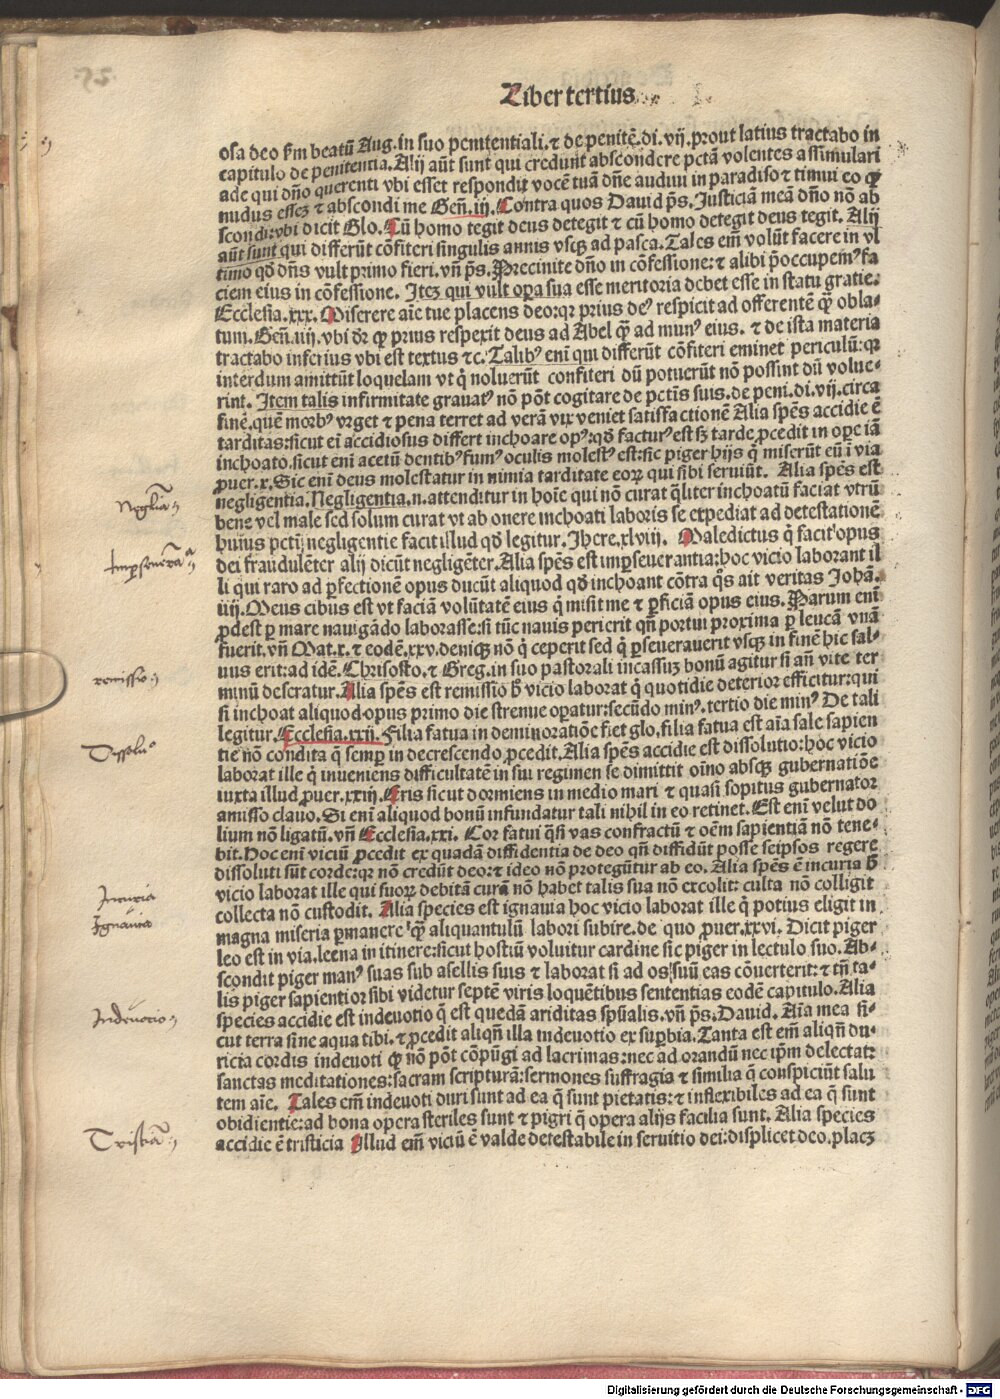 Liber tertius
osa deo ẜm beatū Aug. in suo penitentiali. ⁊ de penitē. di. vij. prout latius tractabo in
capitulo de penitentia. Alij aūt sunt qui credunt abscondere pctā volentes assimulari
ade qui dño querenti vbi esset respondit vocē tuā dñe audiui in paradiso ⁊ timui eo qꝙ
nudus esseꝫ ⁊ abscondi me Geñ. iij. Contra quos Dauid p̄s. Justiciā meā dño nō ab
scondi: vbi dicit Glo. Cū homo tegit deus detegit ⁊ cū homo detegit deus tegit. Alij
aūt sunt qui differūt cōfiteri singulis annis vsqꝫ ad pasca. Tales em̄ volūt facere in vl
timo qđ dñs vult primo fieri. vñ p̄s. Precinite dño in cōfessione: ⁊ alibi p̄occupemꝰ fa
ciem eius in cōfessione. Iteꝫ qui vult oꝑa sua esse meritoria debet esse in statu gratie.
Ecclesia. xxx. Miserere aīe tue placens deo: qꝛ prius deꝰ respicit ad offerentē qꝫ obla-
tum. Geñ. iiij. vbi dꝛ ꝙ prius respexit deus ad Abel qꝫ ad munꝰ eius. ⁊ de ista materia
tractabo inferius vbi est textus ⁊c. Talibꝰ eni qui differūt cōfiteri eminet periculū: qꝛ
interdum amittūt loquelam vt q̇ noluerūt confiteri dū potuerūt nō possint dū volue-
rint. Item talis infirmitate grauatꝰ nō pōt cogitare de pctīs suis. de peni. di. vij. circa
finē. quē morbꝰ vrget ⁊ pena terret ad verā vix veniet satisfactionē Alia spēs accidie ē
tarditas: sicut eī accidiosus differt inchoare opꝰ: qđ facturꝰ est sꝫ tarde ꝓcedit in oꝑe iā
inchoato. sicut eni acetū dentibꝰ fumꝰ oculis molestꝰ est: sic piger hijs q̇ miserūt eū ī via
ꝓuer. x. Sic eni deus molestatur in nimia tarditate eoꝝ qui sibi seruiūt. Alia spēs est
negligentia. Negligentia. n. attenditur in hoīe qui nō curat q̄liter inchoatū faciat vtrū
bene vel male sed solum curat vt ab onere inchoati laboris se expediat ad detestationē
huius pctī negligentie facit illud qđ legitur. Jhere. xlviij. Maledictus q̇ facit opus
dei fraudulēter alij dicūt negligēter. Alia spēs est imꝑseuerantia: hoc vicio laborant il
li qui raro ad ꝑfectionē opus ducūt aliquod qđ inchoant cōtra q̄s ait veritas Johā.
iiij. Meus cibus est vt faciā volūtatē eius q̇ misit me ⁊ ꝑficiā opus eius. Parum eni
ꝓdest ꝑ mare nauigādo laborasse: si tūc nauis perierit qñ portui proxima ꝑ leucā vnā
fuerit. vñ Mat. x. ⁊ eodē. xxv. deniqꝫ nō q̇ ceperit sed q̇ ꝑseuerauerit vsqꝫ in finē hic sal-
uus erit: ad idē. Chrisosto. ⁊ Greg. in suo pastorali incassuꝫ bonū agitur si añ vite ter
minū deseratur. Alia spēs est remissio ħ vicio laborat q̇ quotidie deterior efficitur: qui
si inchoat aliquod opus primo die strenue oꝑatur: secūdo minꝰ. tertio die minꝰ De tali
legitur. Ecclesia. xxij. Filia fatua in deminoratiōe fiet glo. filia fatua est aīa sale sapien
tie nō condita q̄ semꝑ in decrescendo ꝓcedit. Alia spēs accidie est dissolutio: hoc vicio
laborat ille q̇ inueniens difficultatē in sui regimen se dimittit oīno absqꝫ gubernatiōe
iuxta illud ꝓuer. xxiij. Eris sicut dormiens in medio mari ⁊ quasi sopitus gubernator
amisso clauo. Si eni aliquod bonū infundatur tali nihil in eo retinet. Est eni velut do
lium nō ligatū. vñ Ecclesia. xxi. Cor fatui q̄si vas confractū ⁊ oēm sapientiā nō tene-
bit. Hoc eni viciū ꝓcedit ex quadā diffidentia de deo qñ diffidūt posse seipsos regere
dissoluti sūt corde: qꝛ nō credūt deo: ⁊ ideo nō protegūtur ab eo. Alia spēs ē incuria ħ
vicio laborat ille qui suoꝝ debitā curā nō habet talis sua nō excolit: culta nō colligit
collecta nō custodit. Alia species est ignauia hoc vicio laborat ille q̇ potius eligit in
magna miseria ꝑmanere qꝫ aliquantulū labori subire. de quo ꝓuer. xxvi. Dicit piger
leo est in via. leena in itinere: sicut hostiū voluitur cardine sic piger in lectulo suo. Ab-
scondit piger manꝰ suas sub asellis suis ⁊ laborat si ad os suū eas cōuerterit: ⁊ tñ ta-
lis piger sapientior sibi videtur septē viris loquētibus sententias eodē capitulo. Alia
species accidie est indeuotio q̄ est quedā ariditas spūalis. vñ p̄s. Dauid. Aīa mea si-
cut terra sine aqua tibi. ⁊ ꝓcedit aliqñ illa indeuotio ex suꝑbia. Tanta est em̄ aliqñ du-
ricia cordis indeuoti ꝙ nō pōt cōpūgi ad lacrimas: nec ad orandū nec ipm̄ delectat:
sanctas meditationes: sacram scripturā: sermones suffragia ⁊ similia q̄ conspiciūt salu
tem aīe. Tales em̄ indeuoti duri sunt ad ea q̄ sunt pietatis: ⁊ inflexibiles ad ea q̄ sunt
obidientie: ad bona opera steriles sunt ⁊ pigri q̄ opera alijs facilia sunt. Alia species
accidie ē tristicia Illud em̄ viciū ē valde detestabile in seruitio dei: displicet deo. placꝫ
remissio
Dissolu
Incuria
Ignauia
Indeuocio
Tristitia
Digitalisierung gefördert durch die Deutsche Forschungsgemeinschaft - DFG